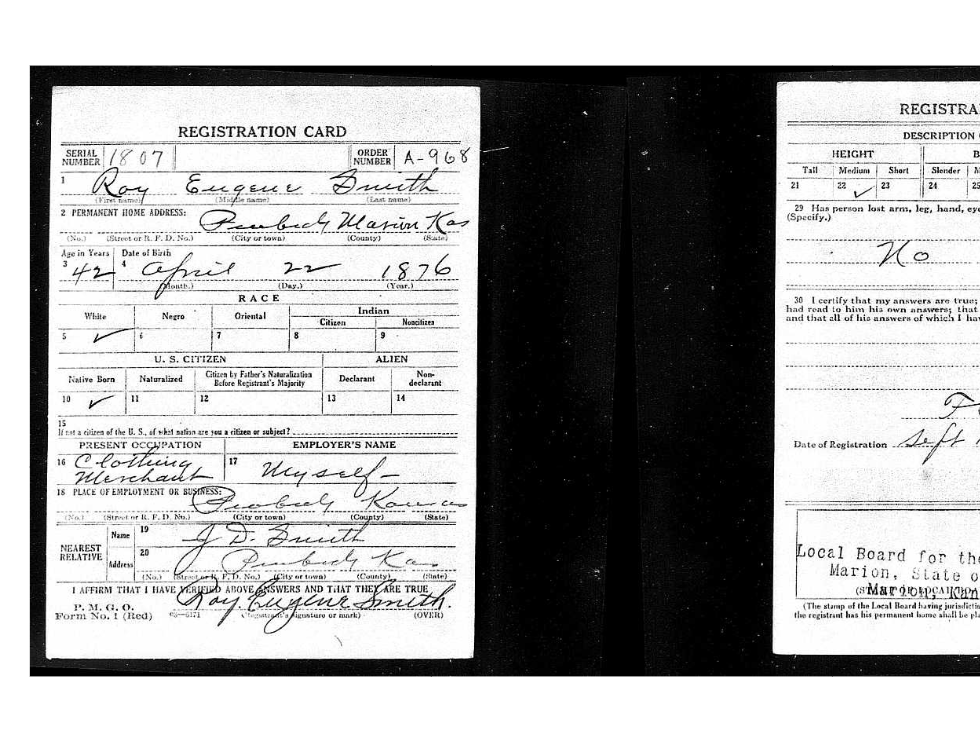 REGISTRATION CARD
SERIAL NUMBER 1807 ORDER NUMBER A-968
1 Roy Eugene Smith
(First name) (Middle name) (Last name)
2 PERMANENT HOME ADDRESS:
Peabody Marion Kas
(No.) (Street or R. F. D. No.) (City or town) (County) (State)
Age in Years Date of Birth
3 42 4 April 22 1876
(Month.) (Day.) (Year.)
RACE
White Negro Oriental Indian
Citizen Noncitizen
5 ✓ 6 7 8 9
U. S. CITIZEN ALIEN
Native Born Naturalized Citizen by Father's Naturalization Before Registrant's Majority Declarant Non-declarant
10 ✓ 11 12 13 14
15
If not a citizen of the U. S., of what nation are you a citizen or subject?
PRESENT OCCUPATION EMPLOYER'S NAME
16 Clothing Merchant 17 Myself
18 PLACE OF EMPLOYMENT OR BUSINESS:
Peabody Kansas
(No.) (Street or R. F. D. No.) (City or town) (County) (State)
NEAREST RELATIVE Name 19 J D. Smith
Address 20 Peabody Kas
(No.) (Street or R. F. D. No.) (City or town) (County) (State)
I AFFIRM THAT I HAVE VERIFIED ABOVE ANSWERS AND THAT THEY ARE TRUE
P. M. G. O.
Form No. 1 (Red) Roy Eugene Smith.
(Registrant's signature or mark) (OVER)
REGISTRA
DESCRIPTION
HEIGHT B
Tall Medium Short Slender M
21 22 ✓ 23 24 25
29 Has person lost arm, leg, hand, eye
(Specify.)
No
30 I certify that my answers are true;
had read to him his own answers; that
and that all of his answers of which I ha
Date of Registration Sept
Local Board for the
Marion, State o
Marion, Kan
(The stamp of the Local Board having jurisdictio
the registrant has his permanent home shall be pla